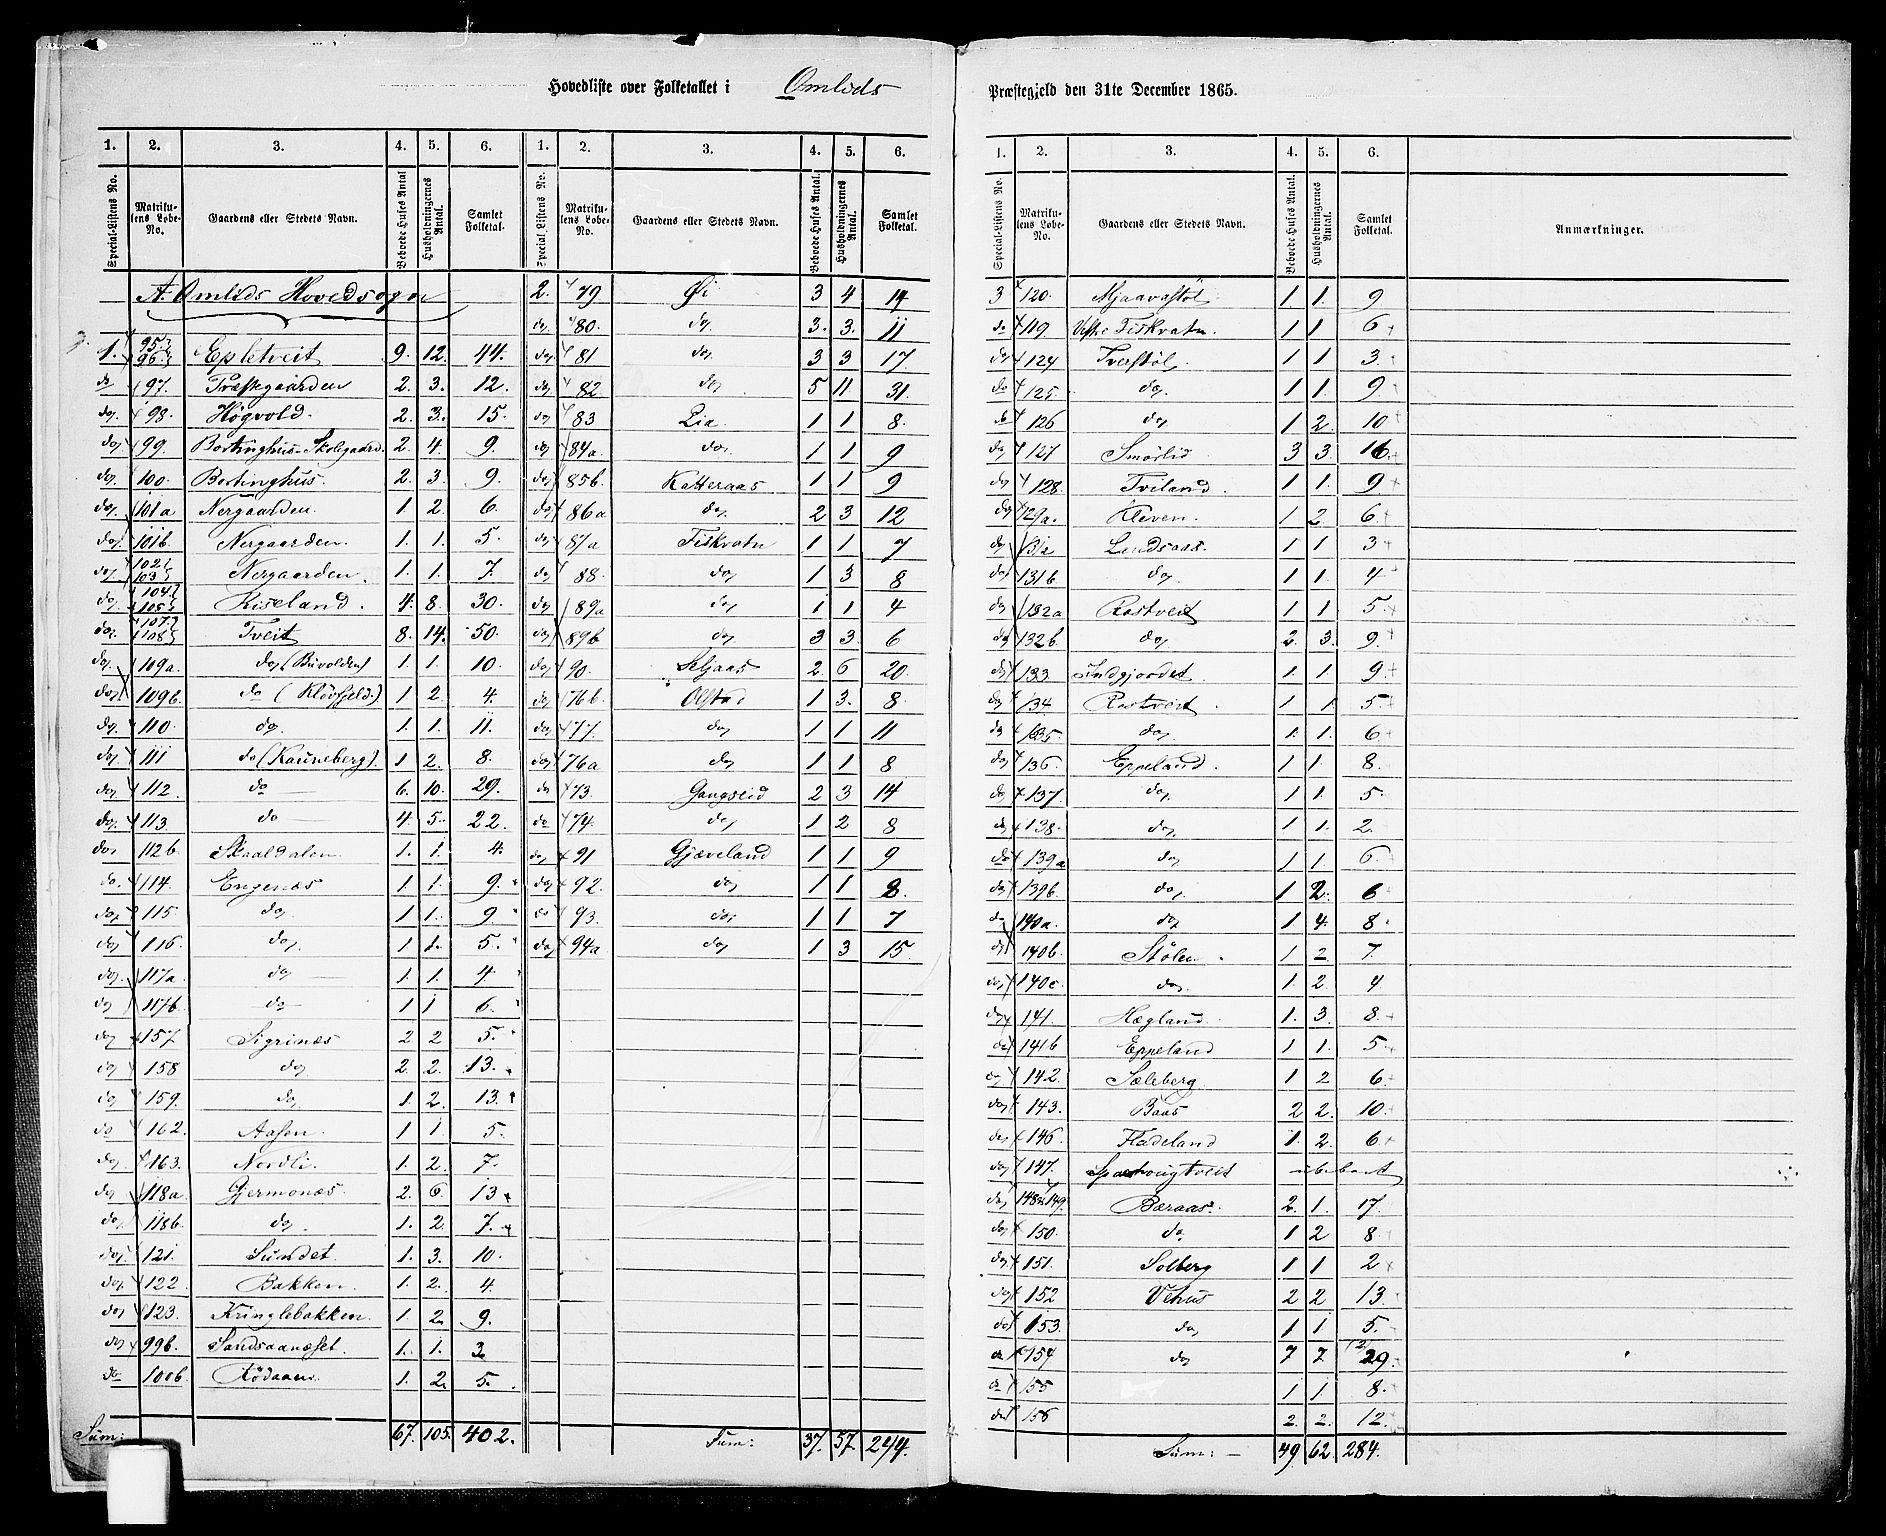 Hovedliste over Folketallet i Omlids Præstegjeld den 31te December 1865.
1. 2. 3. 4. 5. 6. 1. 2. 3. 4. 5. 6.
Special-Listens No. Matrikulens Løbe-No. Gaardens eller Stedets Navn. Beboede Huses Antal Husholdningernes Antal. Samlet Folketal. Special Listens No. Matrikulens Løbe-No. Gaardens eller Stedets Navn. Beboede Huses Antal. Husholdningernes Antal. Samlet Folketal.
A. Omlids Hovedsogn
1. 95. 96. Epletveit 9. 12. 44.
do 97. Præstegaarden 2. 3. 12.
do. 98. Høgvold. 2. 3. 15.
do 99. Bortinghus-Skolegaard. 2. 4. 9.
do. 100. Bortinghus. 2. 3. 9.
do. 101a Nergaarden. 1. 2. 6.
do. 101b. Nergaarden. 1. 1. 5.
do. 102. 103. Nergaarden. 1. 1. 7.
do. 104. 105. Riseland. 4. 8. 30.
do. 107. 108. Tveit 8. 14. 50.
do. 109a. do (Buvolden) 1. 1. 10.
do. 109b. do (Kløvfjeld.) 1. 2. 4.
do. 110. do. 1. 1. 11.
do. 111 do (Kauneberg). 1 2. 8.
do. 112. do 6. 10. 29.
do. 113. do 4. 5. 22.
do. 112b Skaaldalen. 1. 1. 4.
do. 114. Engenæs 1. 1. 9.
do. 115. do. 1 1. 9.
do 116. do. 1 1. 5.
do. 117a do 1 1. 4
do 117b do 1 1 6.
do 157. Sigrinæs 2 2 5.
do 158 do 2. 2. 13.
do 159. do 1. 2. 13.
do 162. Aasen. 1 1. 5.
do. 163. Nordli. 1. 2. 7.
do 118a. Gjermonæs. 2. 6. 13
do. 118b. do. 1. 2. 7.
do 121. Sundet 1. 3. 10.
do. 122. Bakken. 1. 2. 4
do 123. Kringlebakken. 1. 2. 9.
do 99b. Sandsaanæset. 1. 1. 3
do 100b. 1. 2. 5.
Sum: 67. 105. 402.
2. 79 Øi 3 4 14
do 80. do. 3. 3. 11
do 81 do. 3 3 17
do 82. do 5 11 31.
do 83 Lia. 1 1 8.
do 84a. do. 1 1 9
do 85b. Katteraas 1 1 9
do 86a do. 2 3 12
do 87a Fiskvatn 1 1 7
do 88. do 1 3 8
do 89a do 1 1 4
do 89b do 3 3. 6
do 90. Seljaas 2 6 20.
do 76b. Olstad 1 3. 8
do 77. do 1 1 11
do 76a do 1 1 8
do 73. Gangseid 2 3 14
do 74. do 1 2 8
do 91 Gjæveland 1 1 9
do 92. do 1 1 8.
do 93. do 1 1 7
do 94a do 1 3 15.
Sum: 37. 57. 244.
1. 2. 3. 4. 5. 6.
Special-Listens No. Matrikulens Løbe-No. Gaardens eller Stedets Navn. Beboede Huses Antal. Husholdningernes Antal. Samlet Folketal. Anmærkninger.
3 120. Mjaavastøl 1. 1. 9
do 119 Vestre Fiskvatn. 1 1 6
do 124 Tverstøl. 1 1 3
do 125. do. 1 1. 9
126 do. 1 2. 10
do 127 Smørlid 3 3. 16
do 128. Tviland. 1 1. 9
do 129a. Kleven. 1 2 6
do 131a Lendsaas. 1 1 3
do 131b do. 1 1. 4
do 132a Rostveit 1 1 5
do 132b. do. 2. 3. 9.
do 133 Indgjordet 1. 1. 9
do 134 Rostveit 1 1. 5
do 135. do. 1. 1. 6
do 136. Eppeland. 1 1. 8
do 137. do. 1 1. 5
do 138. do. 1 1. 2.
do 139a do 1 1. 6
do 139b. do. 1 2. 6
do 140a. do 1 4. 8
do 140b. Stølen 1 2 7.
do 140c do. 1. 2. 4
do 141. Hægland. 1. 3. 8
do 141b Eppeland 1 1. 5
do 142. Sæleberg. 1 2 6
do 143. Baas 2 2. 10.
do 146. Fladeland 1. 2. 6
do 147. ubeboet
do 148 149. Beraas. 2. 1. 17.
do 150. do 1 2 8
do 151. Solberg 1 1 2
do 152 Vehus 2 2 13.
do 153. do 1 1 5.
154 do 7 7. 29.
155 1 1 8
156 2. 2. 12.
Sum: 49. 62. 284.